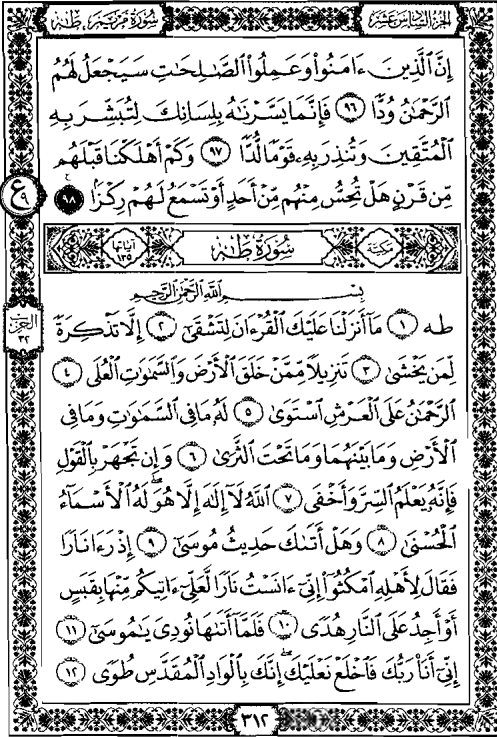 الجزء السادس عشر
سورة مريم، طه
إِنَّ ٱلَّذِينَ ءَامَنُوا۟ وَعَمِلُوا۟ ٱلصَّٰلِحَٰتِ سَيَجْعَلُ لَهُمُ
ٱلرَّحْمَٰنُ وُدًّا ٩٦ فَإِنَّمَا يَسَّرْنَٰهُ بِلِسَانِكَ لِتُبَشِّرَ بِهِ
ٱلْمُتَّقِينَ وَتُنذِرَ بِهِۦ قَوْمًا لُّدًّا ٩٧ وَكَمْ أَهْلَكْنَا قَبْلَهُم
مِّن قَرْنٍ هَلْ تُحِسُّ مِنْهُم مِّنْ أَحَدٍ أَوْ تَسْمَعُ لَهُمْ رِكْزًۢا ٩٨
ع ٩
مكية
سُورَةُ طه
آياتها ١٣٥
بِسْمِ ٱللَّهِ ٱلرَّحْمَٰنِ ٱلرَّحِيمِ
طه ١ مَآ أَنزَلْنَا عَلَيْكَ ٱلْقُرْءَانَ لِتَشْقَىٰٓ ٢ إِلَّا تَذْكِرَةً
الحزب ٣٢
لِّمَن يَخْشَىٰ ٣ تَنزِيلًا مِّمَّنْ خَلَقَ ٱلْأَرْضَ وَٱلسَّمَٰوَٰتِ ٱلْعُلَى ٤
ٱلرَّحْمَٰنُ عَلَى ٱلْعَرْشِ ٱسْتَوَىٰ ٥ لَهُۥ مَا فِى ٱلسَّمَٰوَٰتِ وَمَا فِى
ٱلْأَرْضِ وَمَا بَيْنَهُمَا وَمَا تَحْتَ ٱلثَّرَىٰ ٦ وَإِن تَجْهَرْ بِٱلْقَوْلِ
فَإِنَّهُۥ يَعْلَمُ ٱلسِّرَّ وَأَخْفَى ٧ ٱللَّهُ لَآ إِلَٰهَ إِلَّا هُوَ لَهُ ٱلْأَسْمَآءُ
ٱلْحُسْنَىٰ ٨ وَهَلْ أَتَىٰكَ حَدِيثُ مُوسَىٰٓ ٩ إِذْ رَءَا نَارًا
فَقَالَ لِأَهْلِهِ ٱمْكُثُوٓا۟ إِنِّىٓ ءَانَسْتُ نَارًا لَّعَلِّىٓ ءَاتِيكُم مِّنْهَا بِقَبَسٍ
أَوْ أَجِدُ عَلَى ٱلنَّارِ هُدًى ١٠ فَلَمَّآ أَتَىٰهَا نُودِىَ يَٰمُوسَىٰٓ ١١
إِنِّىٓ أَنَا۠ رَبُّكَ فَٱخْلَعْ نَعْلَيْكَ إِنَّكَ بِٱلْوَادِ ٱلْمُقَدَّسِ طُوًى ١٢
٣١٢